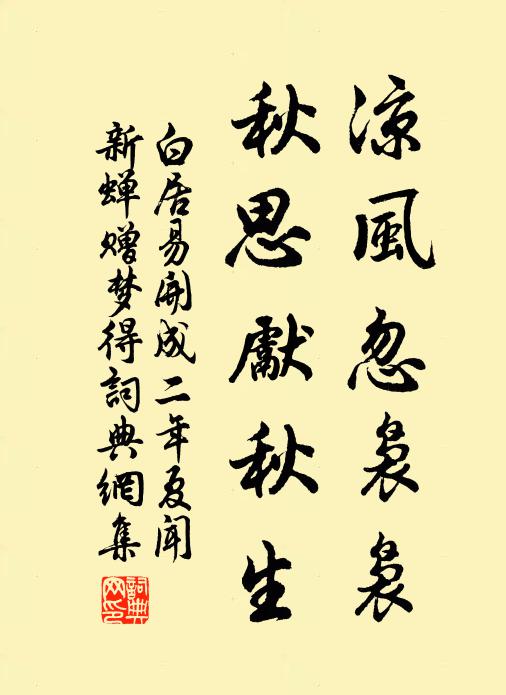 涼風忽裊裊
秋思獻秋生
白居易開成二年夏聞
新蝉贈梦得詞典網集
詞典网印